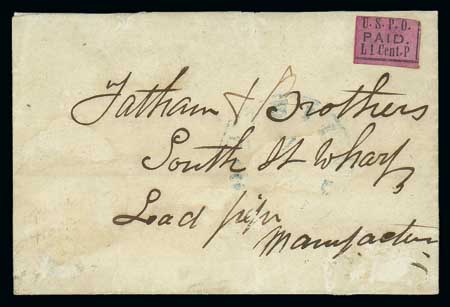 U.S.P.O.
PAID.
L 1 Cent. P
Tatham & Brothers
South St Wharf
Lead pipe
Manufacturer